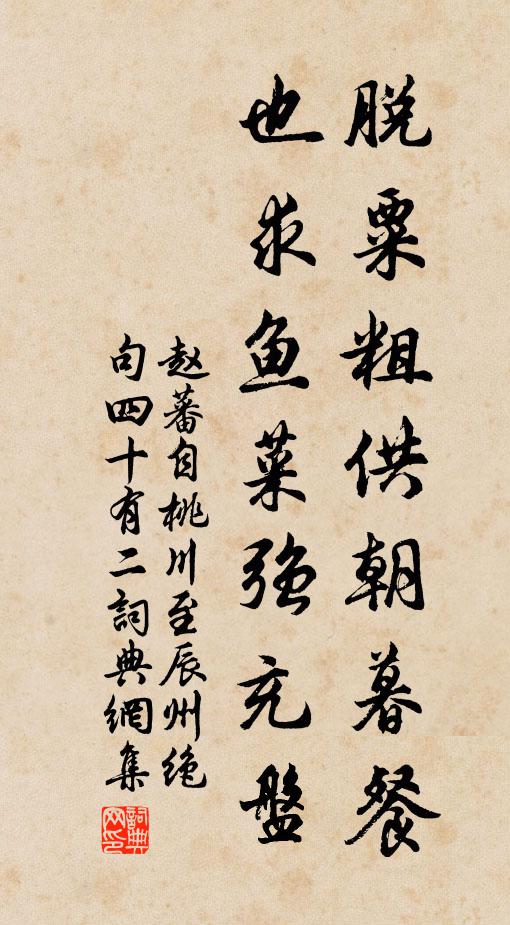 脱粟粗供朝暮餐
也求鱼菜强充盤
赵蕃自桃川至辰州绝
句四十有二詞典網集
詞典
网印